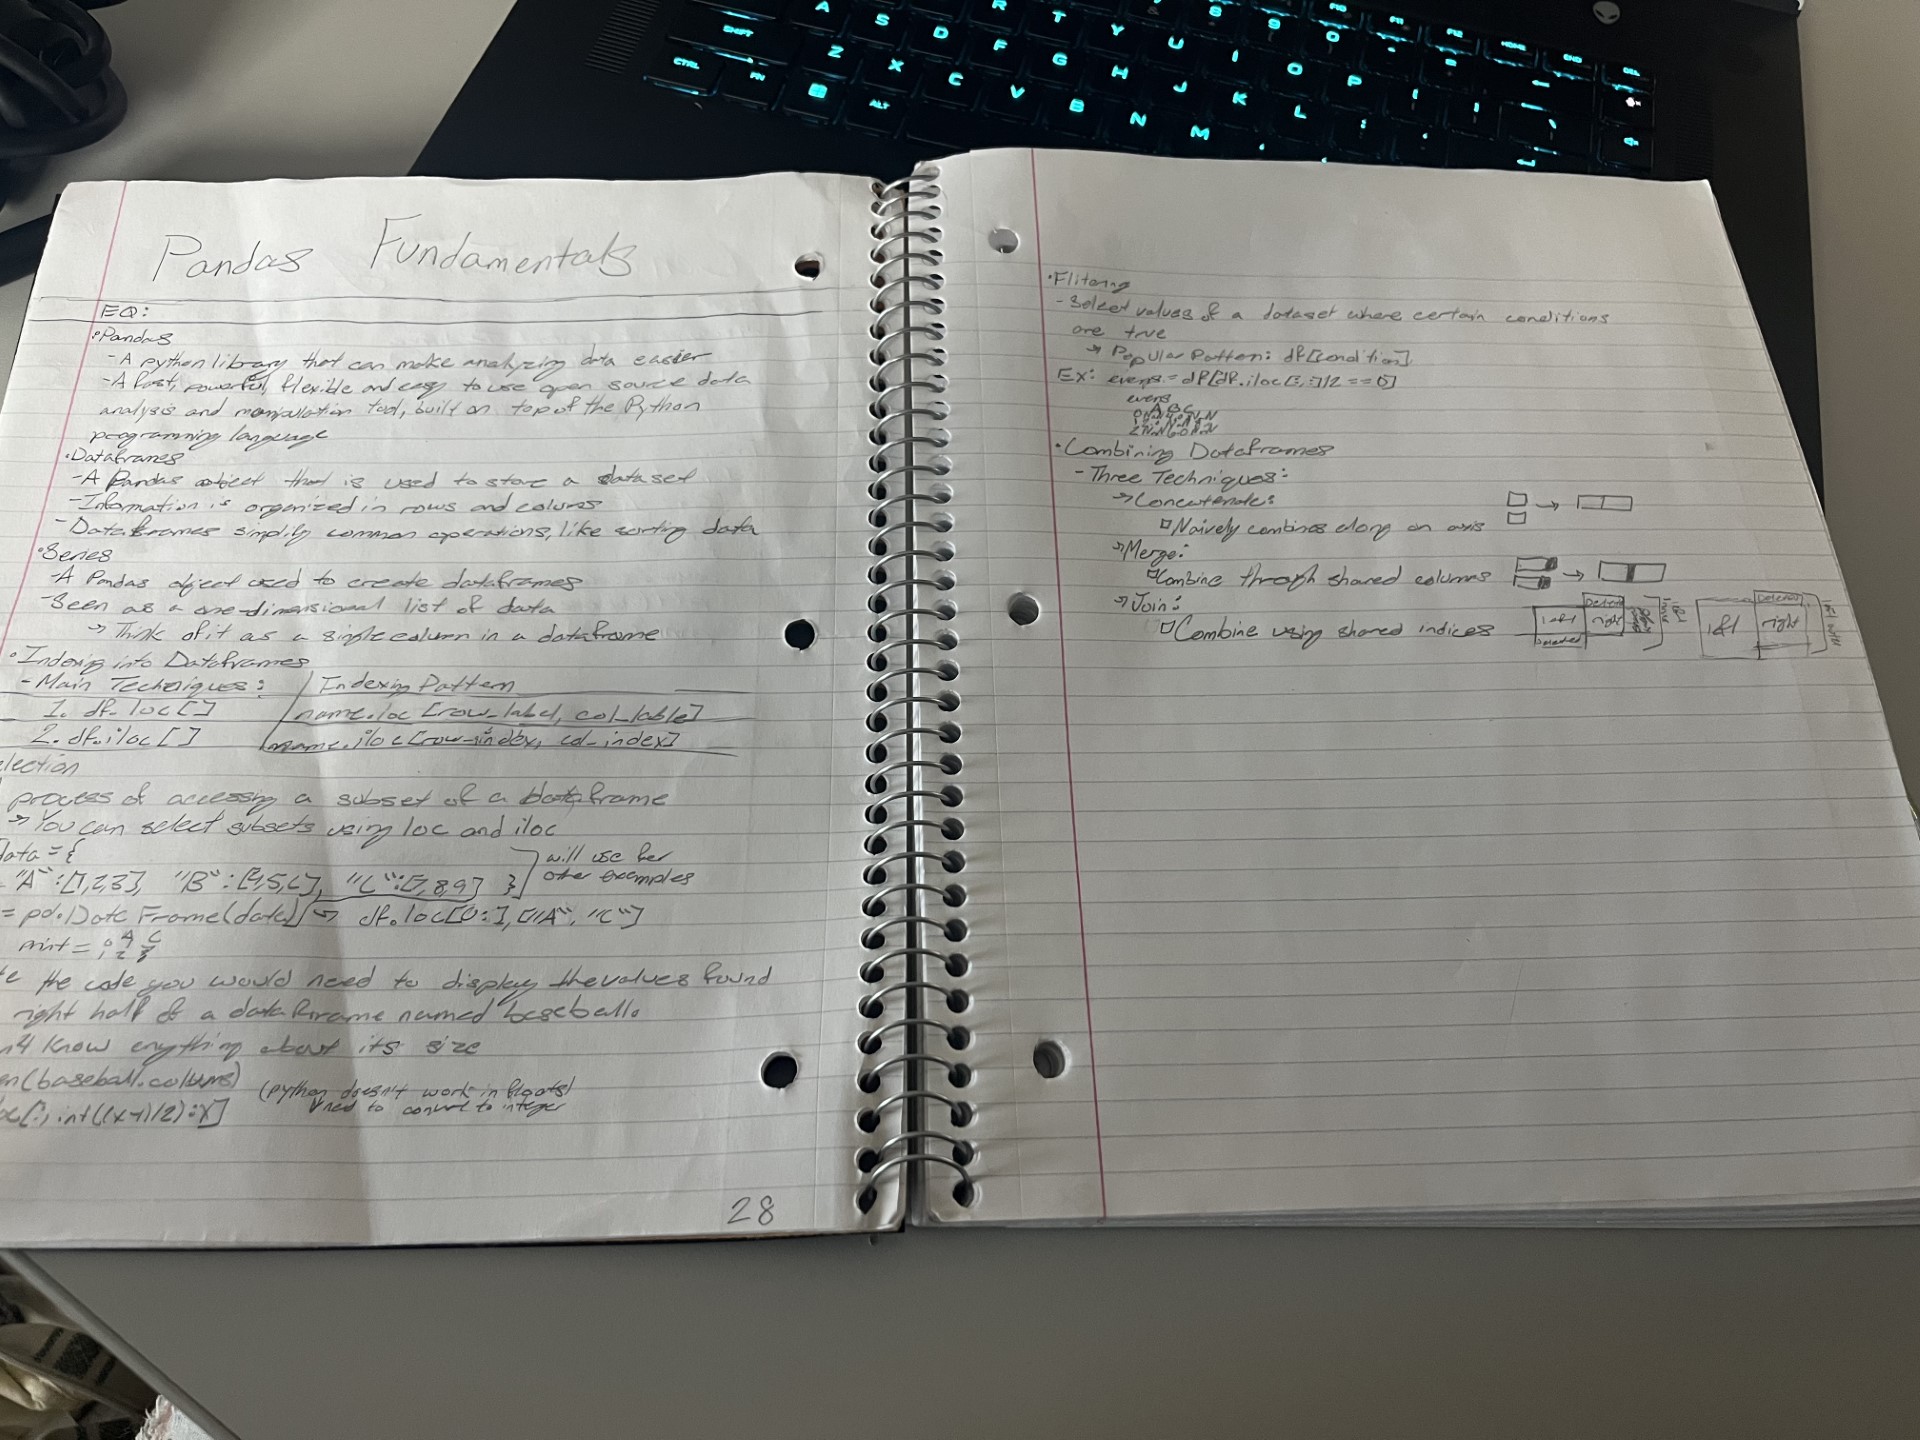 Pandas Fundamentals
EQ:
•Pandas
-A python library that can make analyzing data easier
-A fast, powerful, flexible and easy to use open source data
analysis and manipulation tool, built on top of the Python
programming language
•Dataframes
-A Pandas object that is used to store a dataset
-Information is organized in rows and colums
-Dataframes simplify common operations, like sorting data
•Series
-A Pandas object used to create dataframes
-Seen as a one-dimensional list of data
→ Think of it as a single column in a dataframe
•Indexing into Dataframes
-Main Techniques: Indexing Pattern
1. df.loc[] name.loc[row_label, col_lable]
2. df.iloc[] name.iloc[row_index, col_index]
election
process of accessing a subset of a dataframe
→ You can select subsets using loc and iloc
data = {
"A":[1,2,3], "B":[4,5,6], "C":[7,8,9] } will use for
other examples
= pd.DataFrame(data) → df.loc[0:1,["A","C"]
print =
A C
the code you would need to display the values found
right half of a dataframe named baseball.
know anything about its size
en(baseball.colums) (python doesn't work in floats)
need to convert to integer
oc[:, int((x+1)/2):x]
28
•Flitering
-Select values of a dataset where certain conditions
are true
→ Popular Pattern: df[condition]
Ex: evens = df[df.iloc[:,:]%2 == 0]
evens
A B C
•Combining Dataframes
-Three Techniques:
→Concatenate:
Naively combines along an axis
→Merge:
Combine through shared columns
→Join:
Combine using shared indices
left right
left right
A S D F G H J K L
R T Y U I O P
Z X C V B N M
SHIFT
CTRL
FN
ALT
8 9 0
F10 F11 F12 HOME END DEL